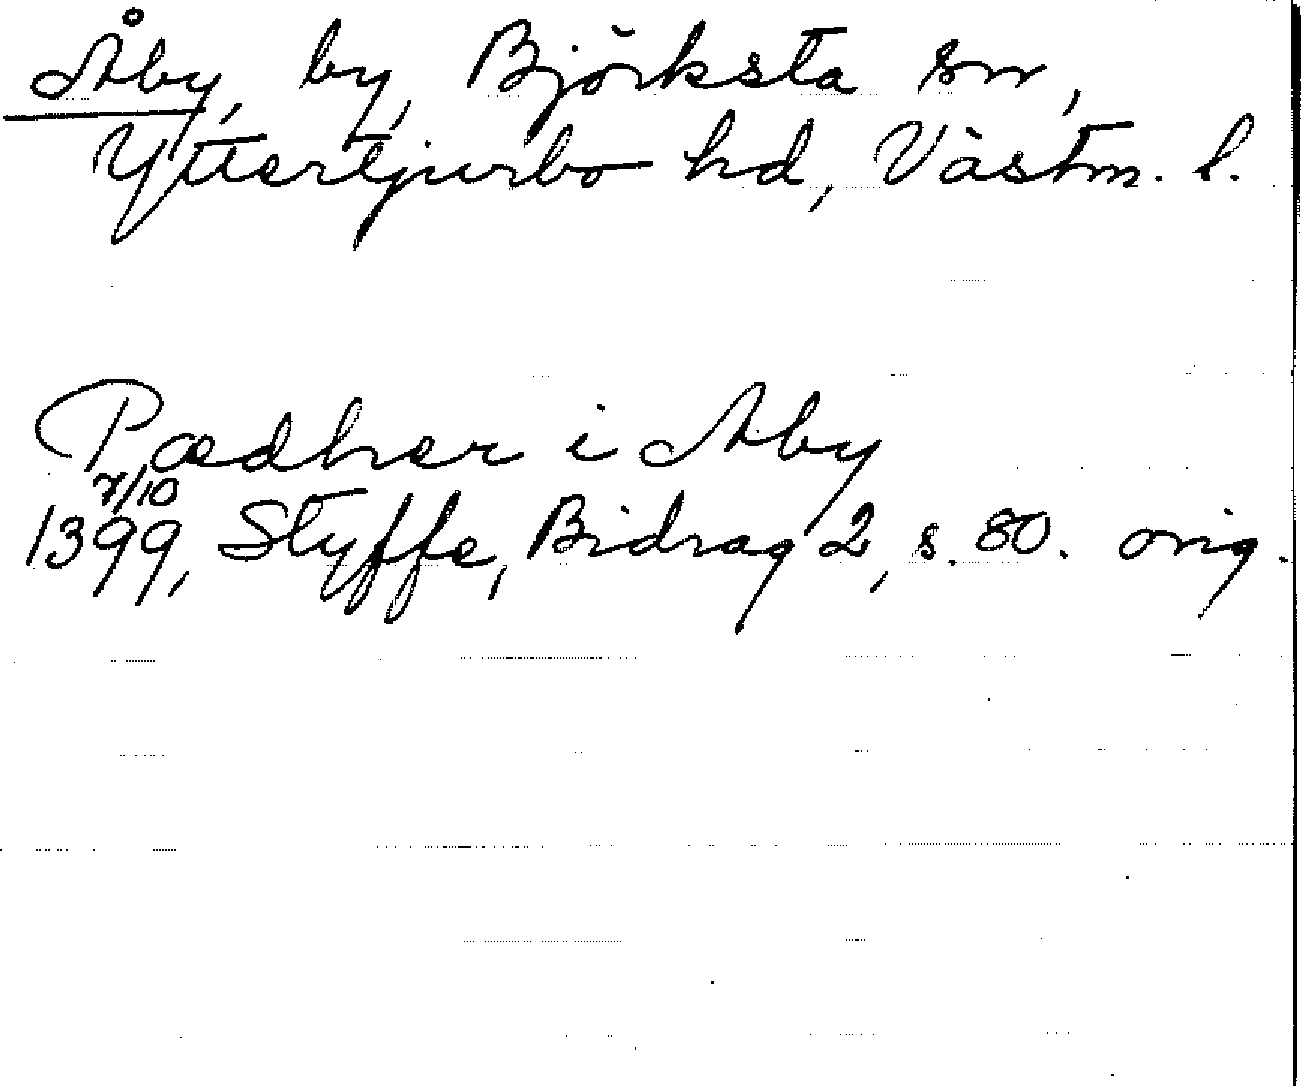 Åby, by, Björksta sn,
Yttertjurbo hd, Västm. l.
Pædher i Aby
1399 7/10, Styffe, Bidrag 2, s. 80. orig.